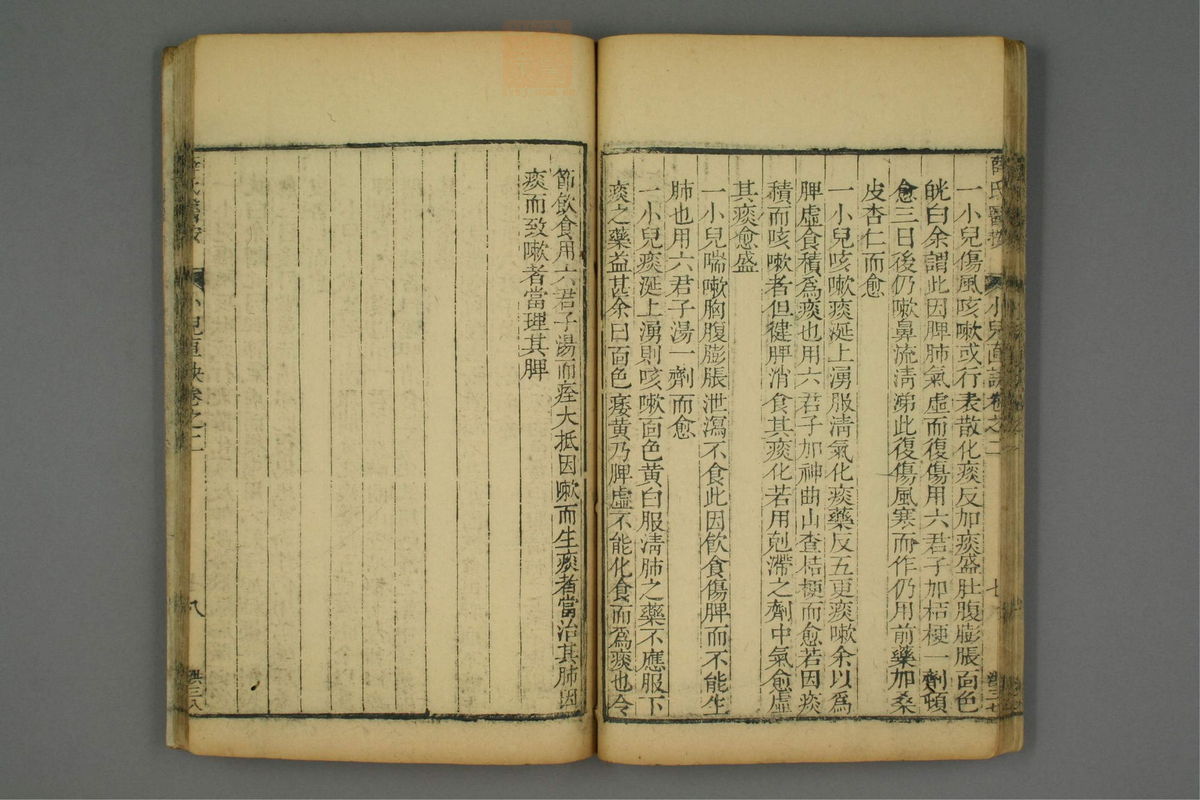 薛氏醫按
小兒直訣卷之二
七
一小兒傷風咳嗽或行表散化痰反加痰盛肚腹膨脹面色
㿠白余謂此因脾肺氣虛而復傷用六君子加桔梗一劑頓
愈三日後仍嗽鼻流清涕此復傷風寒而作仍用前藥加桑
皮杏仁而愈
一小兒咳嗽痰涎上湧服清氣化痰藥反五更痰嗽余以爲
脾虛食積爲痰也用六君子加神曲山查桔梗而愈若因痰
積而咳嗽者但健脾消食其痰化若用剋滯之劑中氣愈虛
其痰愈盛
一小兒喘嗽胸腹膨脹泄瀉不食此因飲食傷脾而不能生
肺也用六君子湯一劑而愈
一小兒痰涎上湧則咳嗽面色黃白服清肺之藥不應服下
痰之藥益甚余曰面色痿黃乃脾虛不能化食而爲痰也令
節飲食用六君子湯而痊大抵因嗽而生痰者當治其肺因
痰而致嗽者當理其脾
小兒直訣卷之二
八